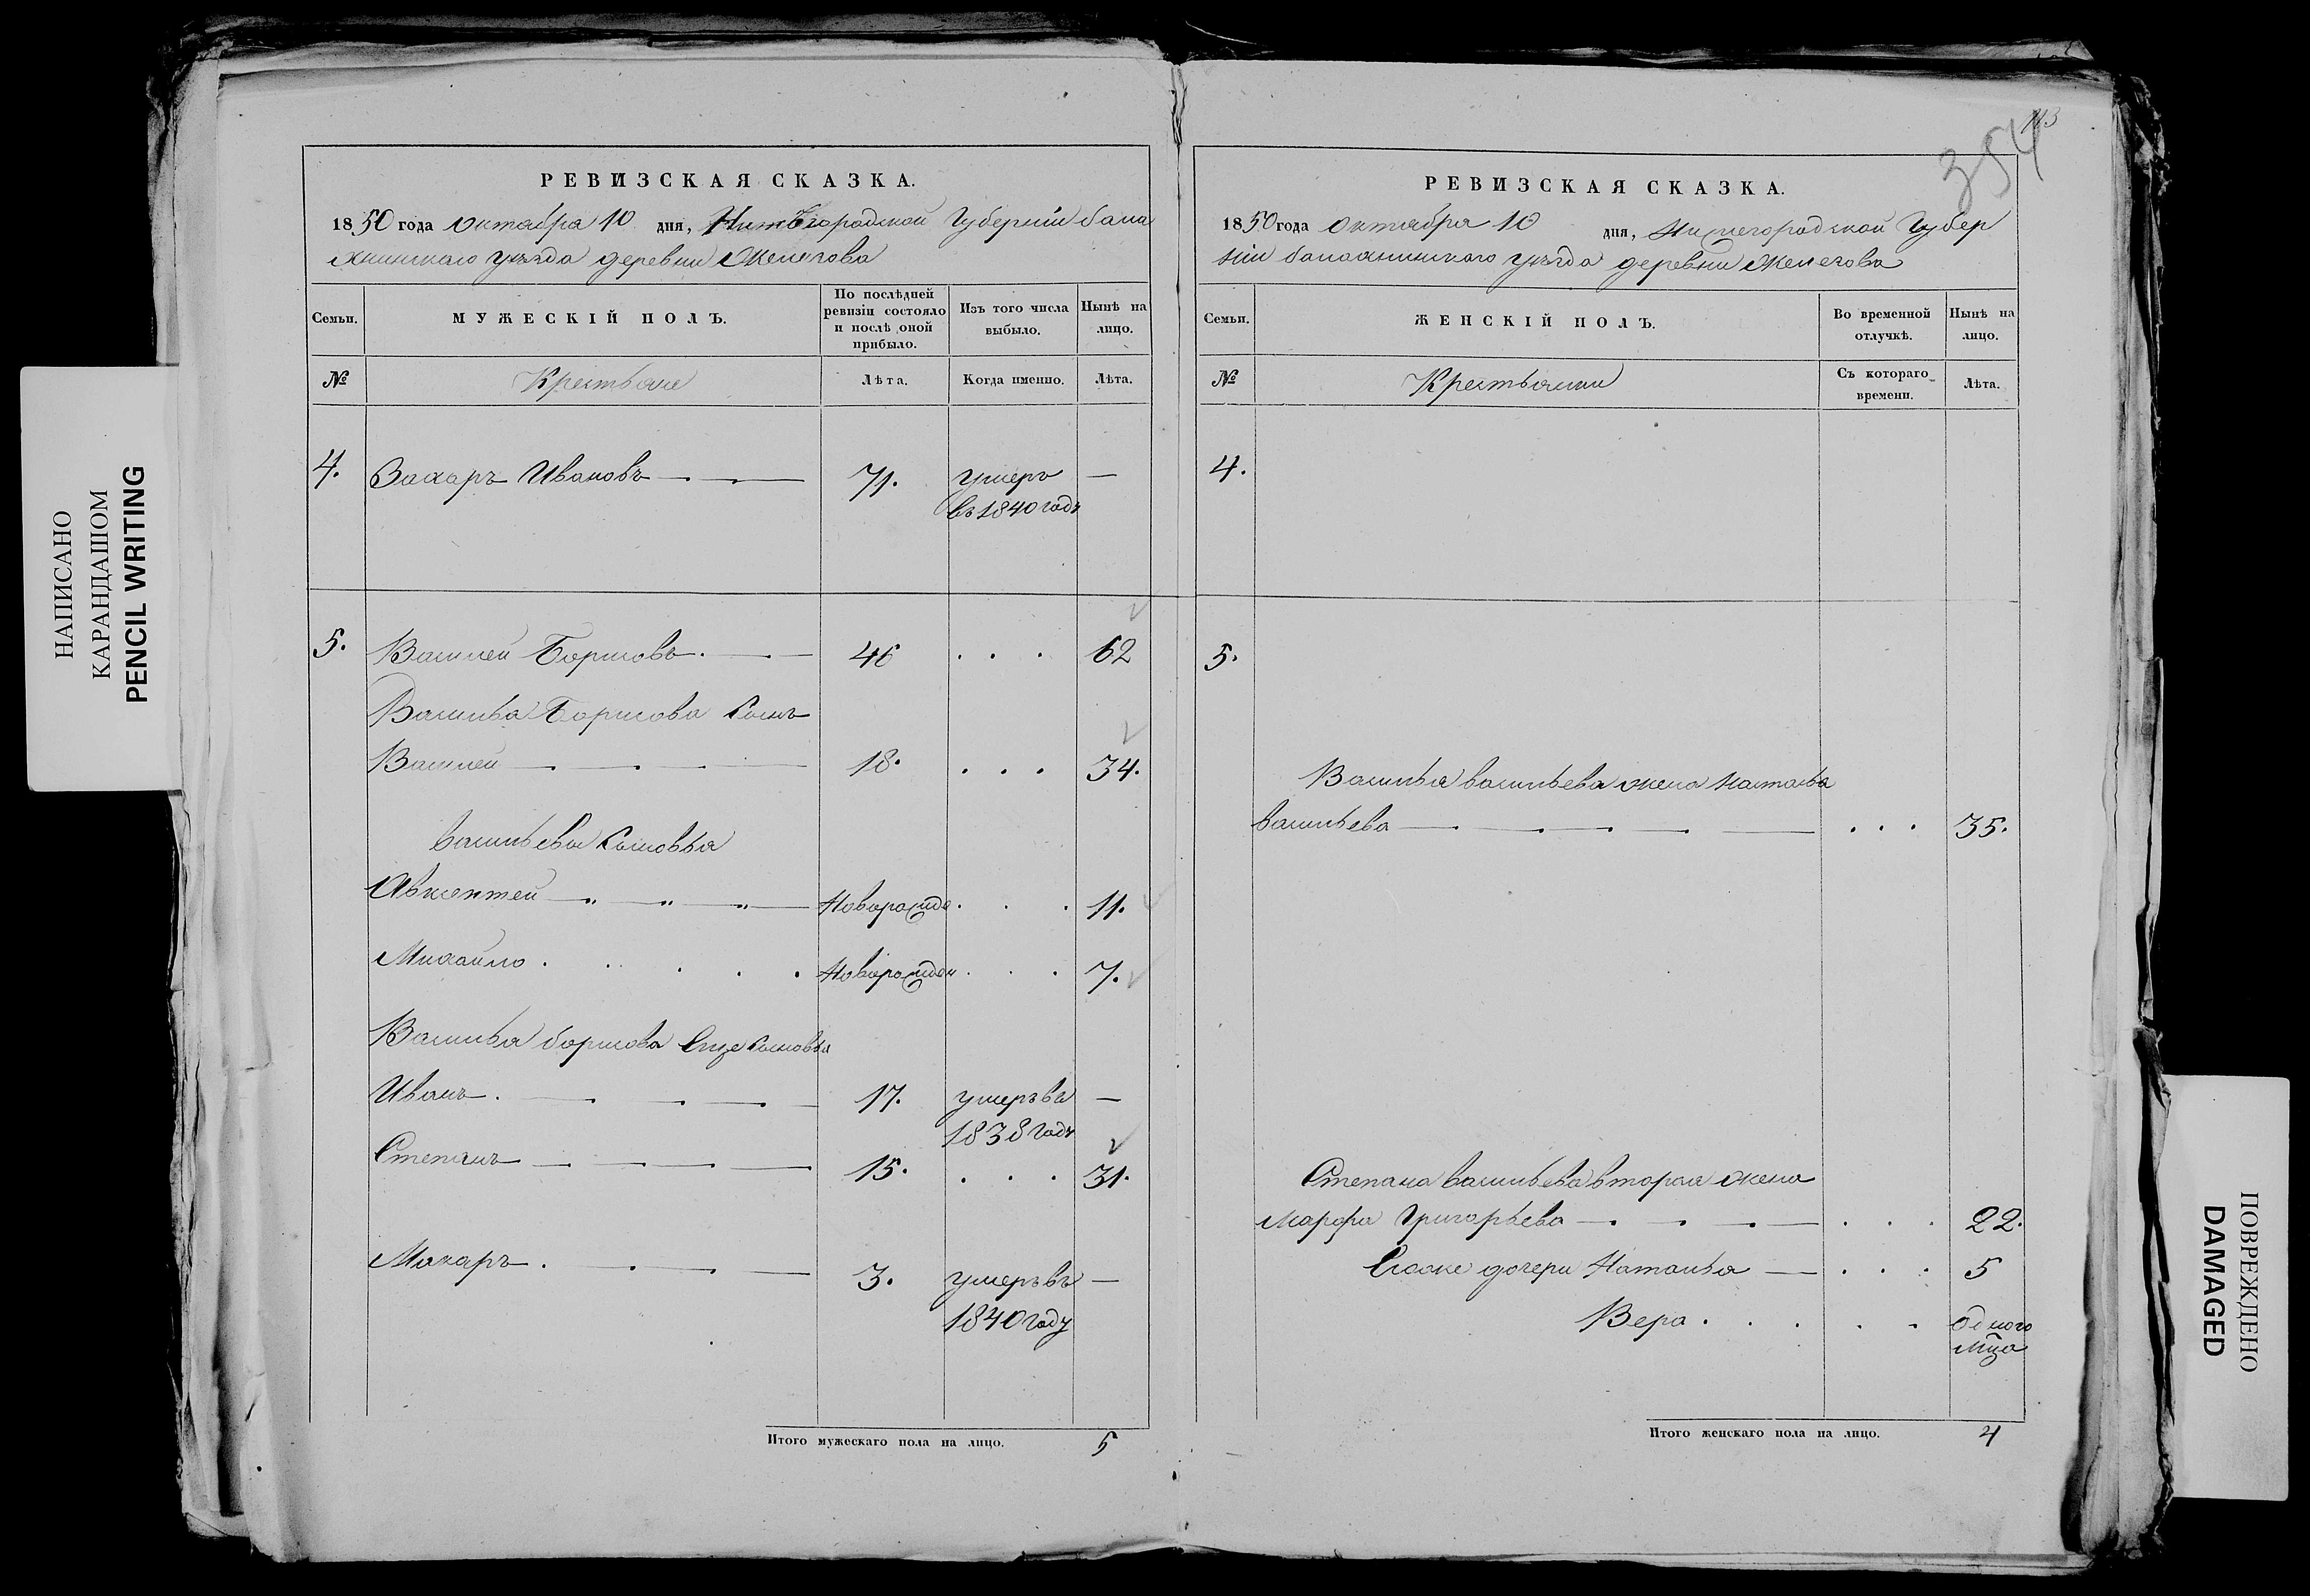 НАПИСАНО
КАРАНДАШОМ
PENCIL WRITING
РЕВИЗСКАЯ СКАЗКА.
1850 года Октября 10 дня, Нижегородской Губернiи бала
хнинскаго уѣзда деревни
Семьи.
МУЖЕСКIЙ ПОЛЪ.
По послѣдней ревизiи состояло и послѣ оной прибыло.
Изъ того числа выбыло.
Нынѣ на лицо.
№
Крестьяне
Лѣта.
Когда именно.
Лѣта.
4. Захаръ Ивановъ 71. умеръ —
въ 1840 году
5. Василей Борисовъ. 46 . . . 62
Василья Борисова Сынъ
Василей 18. . . . 34.
Васильева Сыновья
Авксентей Новорожде . . . 11.
Михайло . . . . . Новорожден . . . 7.
Василья борисова Еще Сыновья
Иванъ. 17. умеръ въ —
1838 году
Степанъ 15. . . . 31.
Макаръ. 3. умеръ въ —
1840 году
Итого мужескаго пола на лицо. 5
113
354
РЕВИЗСКАЯ СКАЗКА.
1850 года Октября 10 дня, Нижегородской Губер
нiи балахнинскаго уѣзда деревни
Семьи.
ЖЕНСКIЙ ПОЛЪ.
Во временной отлучкѣ.
Нынѣ на лицо.
№
Крестьянки
Съ котораго времени.
Лѣта.
4.
5.
Василья васильева жена Наталья
васильева . . . 35.
Степана васильева вторая жена
Марфа Григорьева . . . 22.
Егоже дочери Наталья . . . 5
Вера . . . . . одного
мца
Итого женскаго пола на лицо. 4
ПОВРЕЖДЕНО
DAMAGED